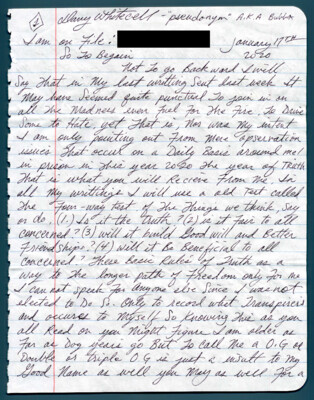 1
Danny Whitewell - "pseudonym" A.K.A Bubba
I am on File:
January 17th
So To Begain
2020
Not To go Backward I will
Say That in My last writting Sent last week It
May have Seemed quite punctual To join in on
all the Madness over Fuel For The Fire To Drive
Some to Hate, yet That is, Nor was My intent
I am only pointing out From Mere observation
issues That occur on a Daily Basis around me
in prison in This year 2020 The year of Truth
That is what you will Recieve From Me. In
all My writtings I will use a old Test called
The Four-way Test of The Things we think, Say
or do. (1.) Is it the Truth? (2) is it Fair to all
concerned? (3) will it build Good will and Better
Friendships? (4) Will it Be Beneficial to all
concerned? These Basic Rules of Truth as a
way To the longer path of Freedom only For Me
I can not speak For Anyone else Since I was not
elected to Do So. Only to record what Transpires
and occures to Myself So Knowing This as you
all Read on you Might Figure I am older as
Far as Dog years go But To Call Me a O.G or
Double or triple O.G is just a insult to My
Good Name as well you May as well For a